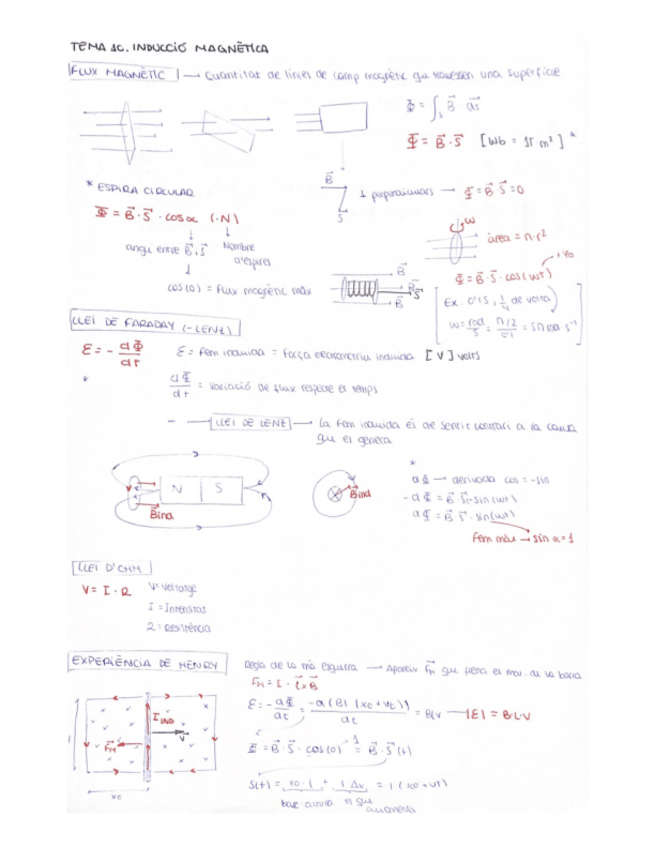 TEMA 10. INDUCCIÓ MAGNÈTICA
FLUX MAGNÈTIC → Quantitat de línies de camp magnètic que travessen una superfície
Φ = ∫s B⃗ · ds⃗
Φ = B⃗ · S⃗ [Wb = 1T m²] *
* ESPIRA CIRCULAR
B⃗
S⃗
⊥ perpendiculars → Φ = B⃗ · S⃗ = 0
Φ = B⃗ · S⃗ · cos α (·N)
angle entre B⃗ i S⃗
Nombre d'espires
cos(0) = Flux magnètic màx
B⃗
B⃗
S⃗
B⃗
ω
àrea = π·r²
Φ = B⃗ · S⃗ · cos(ωt) + φ0
Ex. 0'1s, 1/4 de volta
ω = rad/s = π/2 / 0'1 = 5π rad s⁻¹
LLEI DE FARADAY (-LENZ)
ε = - dΦ/dt
ε = fem induida = força electromotriu induida [V] volts
*
dΦ/dt = variació de flux respecte el temps
- → LLEI DE LENZ → La fem induida és de sentit contrari a la causa
que el genera
N S
B⃗ind
B⃗ind
*
dΦ → derivada cos = -sin
-dΦ = B⃗ · S⃗ · -sin(ωt)
dΦ = B⃗ · S⃗ · sin(ωt)
Fem màx → sin α = 1
LLEI D'OHM
V = I · R
V = Voltatge
I = Intensitat
R = Resistència
EXPERIÈNCIA DE HENRY
Regla de la mà esquerra → Apareix F⃗M que frena el mov. de la barra
FM = I · l⃗ × B⃗
I IND
F⃗M
v⃗
l
x0
ε = - dΦ/dt = -d(Bl(x0 + vt))/dt = Blv → |ε| = B·L·V
Φ = B⃗ · S⃗ · cos(0) 1 = B⃗ · S⃗(t)
S(t) = x0 · l + l Δx = l (x0 + vt)
el que
augmenta